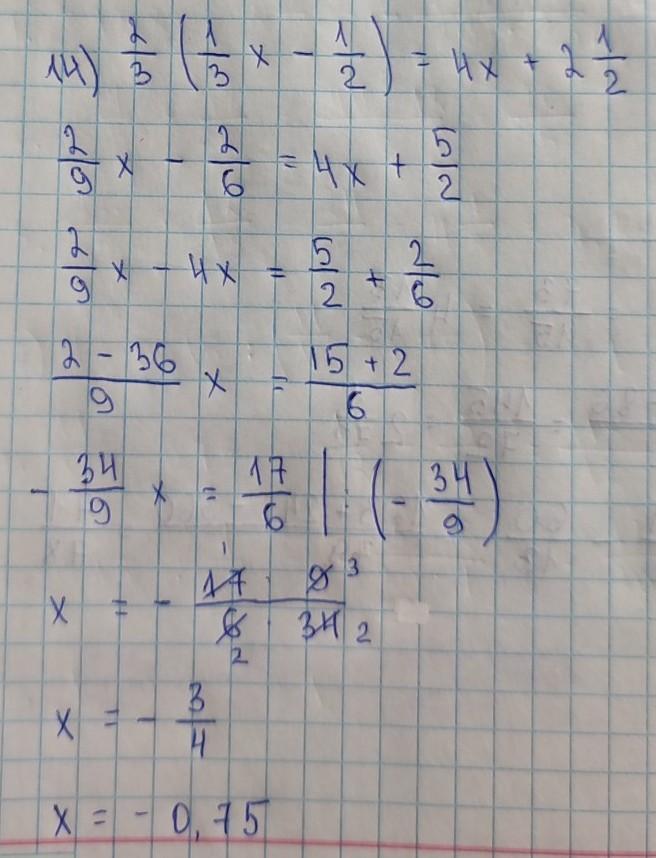 14) 2/3 (1/3 x - 1/2) = 4x + 2 1/2
2/9 x - 2/6 = 4x + 5/2
2/9 x - 4x = 5/2 + 2/6
(2 - 36)/9 x = (15 + 2)/6
- 34/9 x = 17/6 | : (- 34/9)
x = - (17 · 9)/(6 · 34) 1 3 2 2
x = - 3/4
x = - 0,75